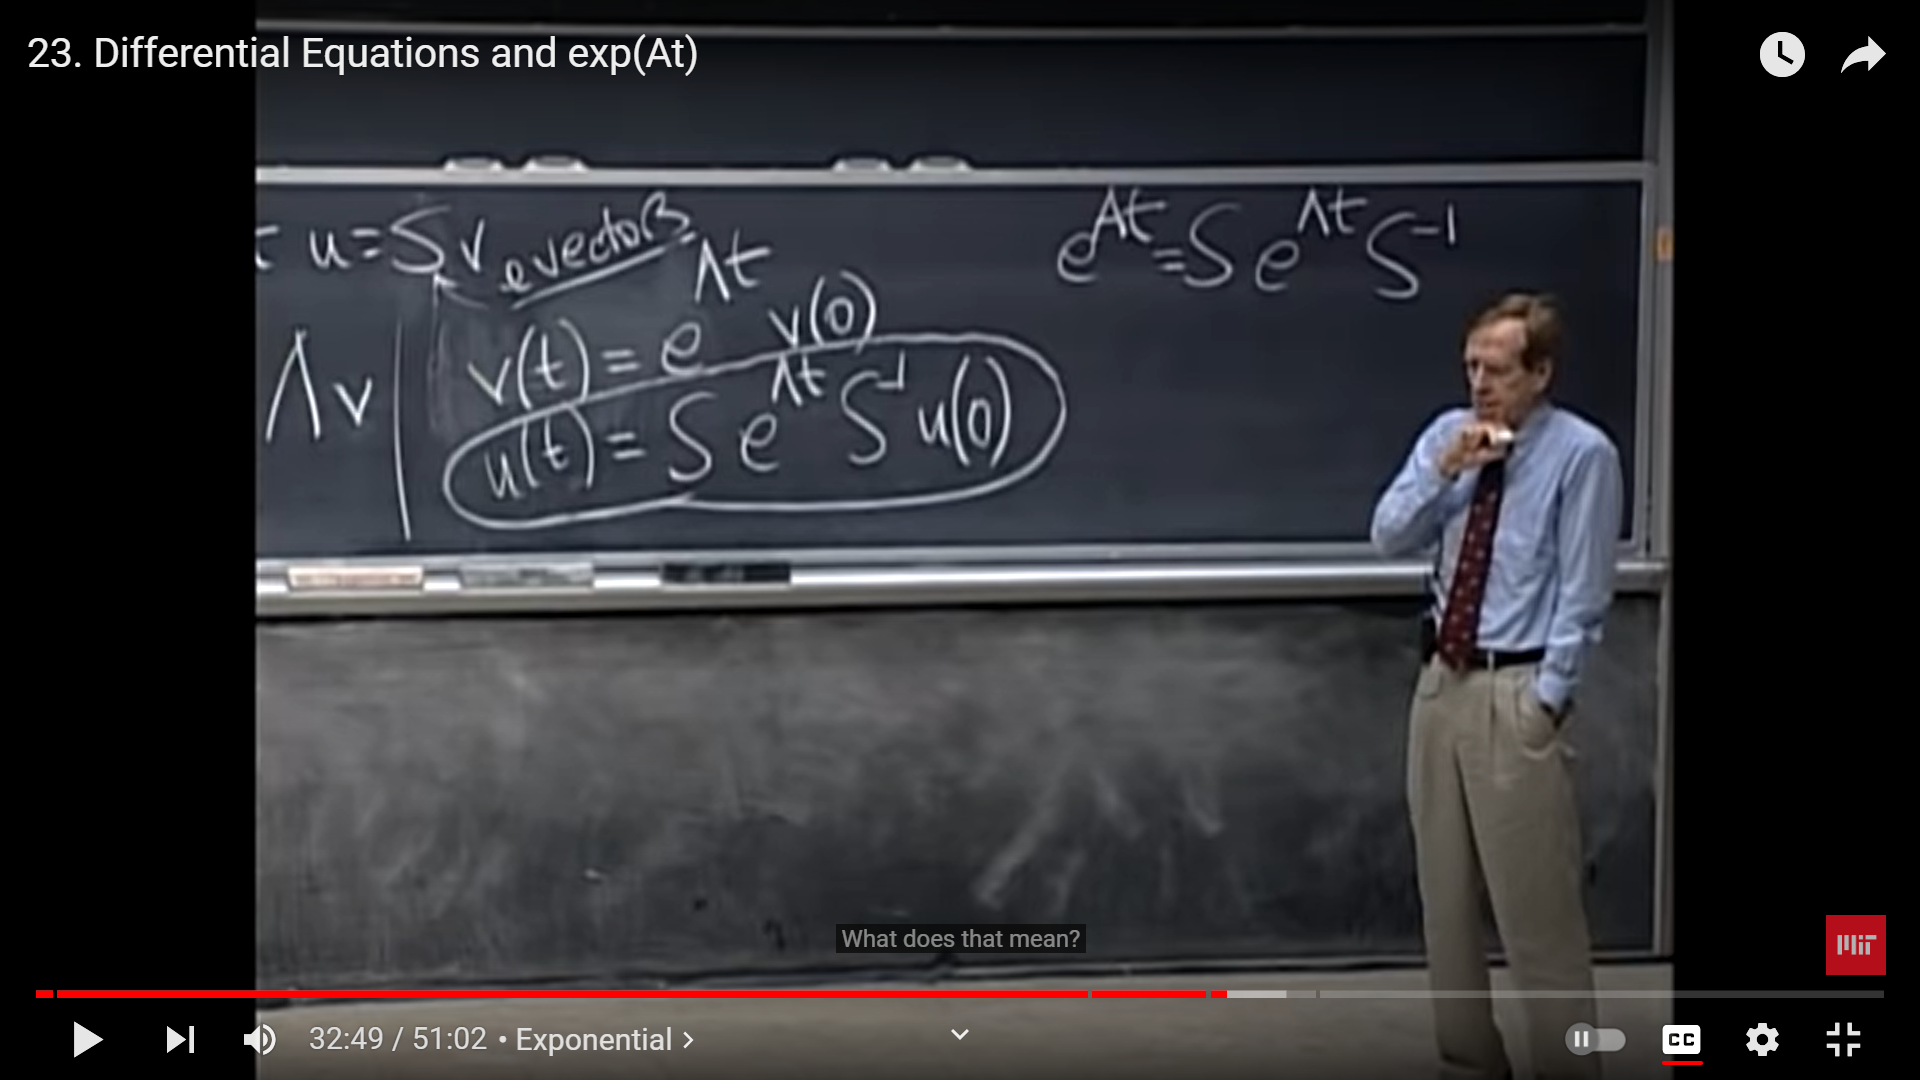 23. Differential Equations and exp(At)
u=Sv evectors
Λv
v(t) = e^Λt v(0)
u(t) = S e^Λt S^-1 u(0)
e^At = S e^Λt S^-1
What does that mean?
MIT
32:49 / 51:02 • Exponential >
CC